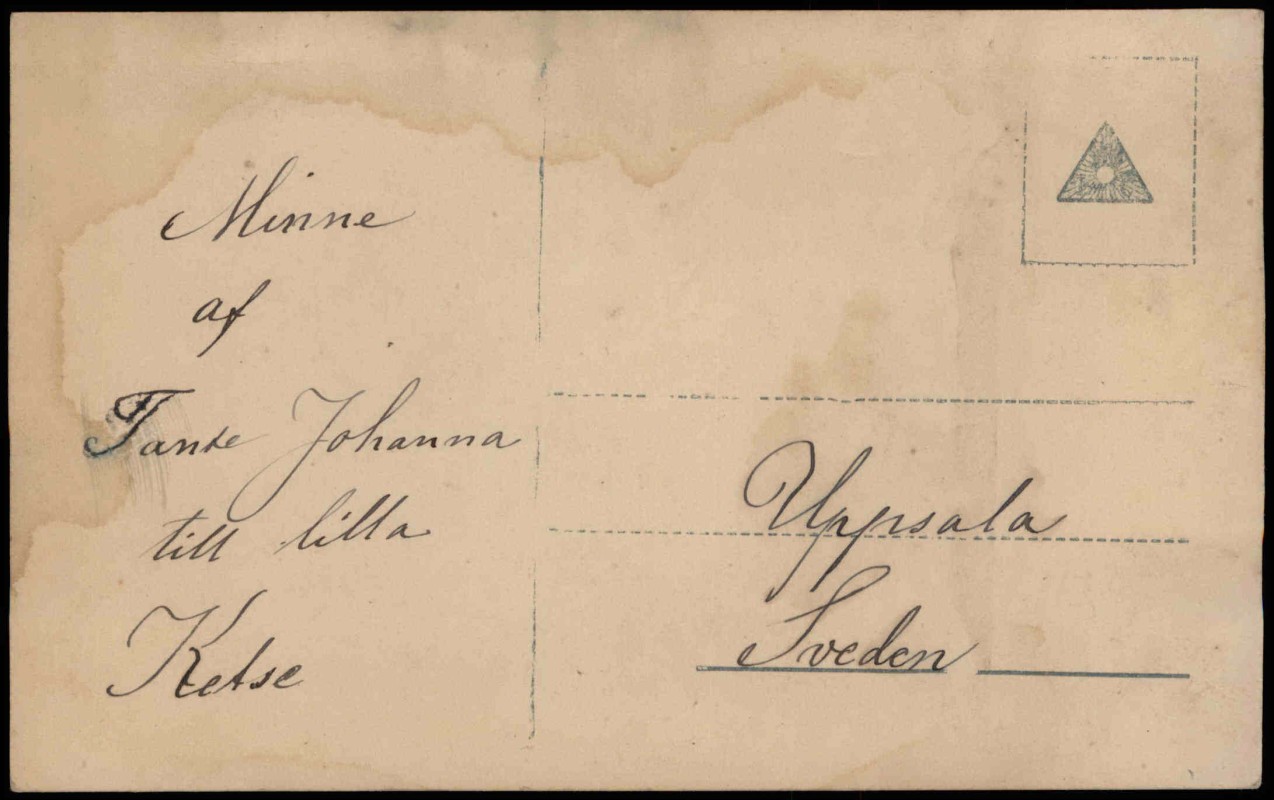 Minne
af
Tante Johanna
till lilla
Ketse
Uppsala
Sveden